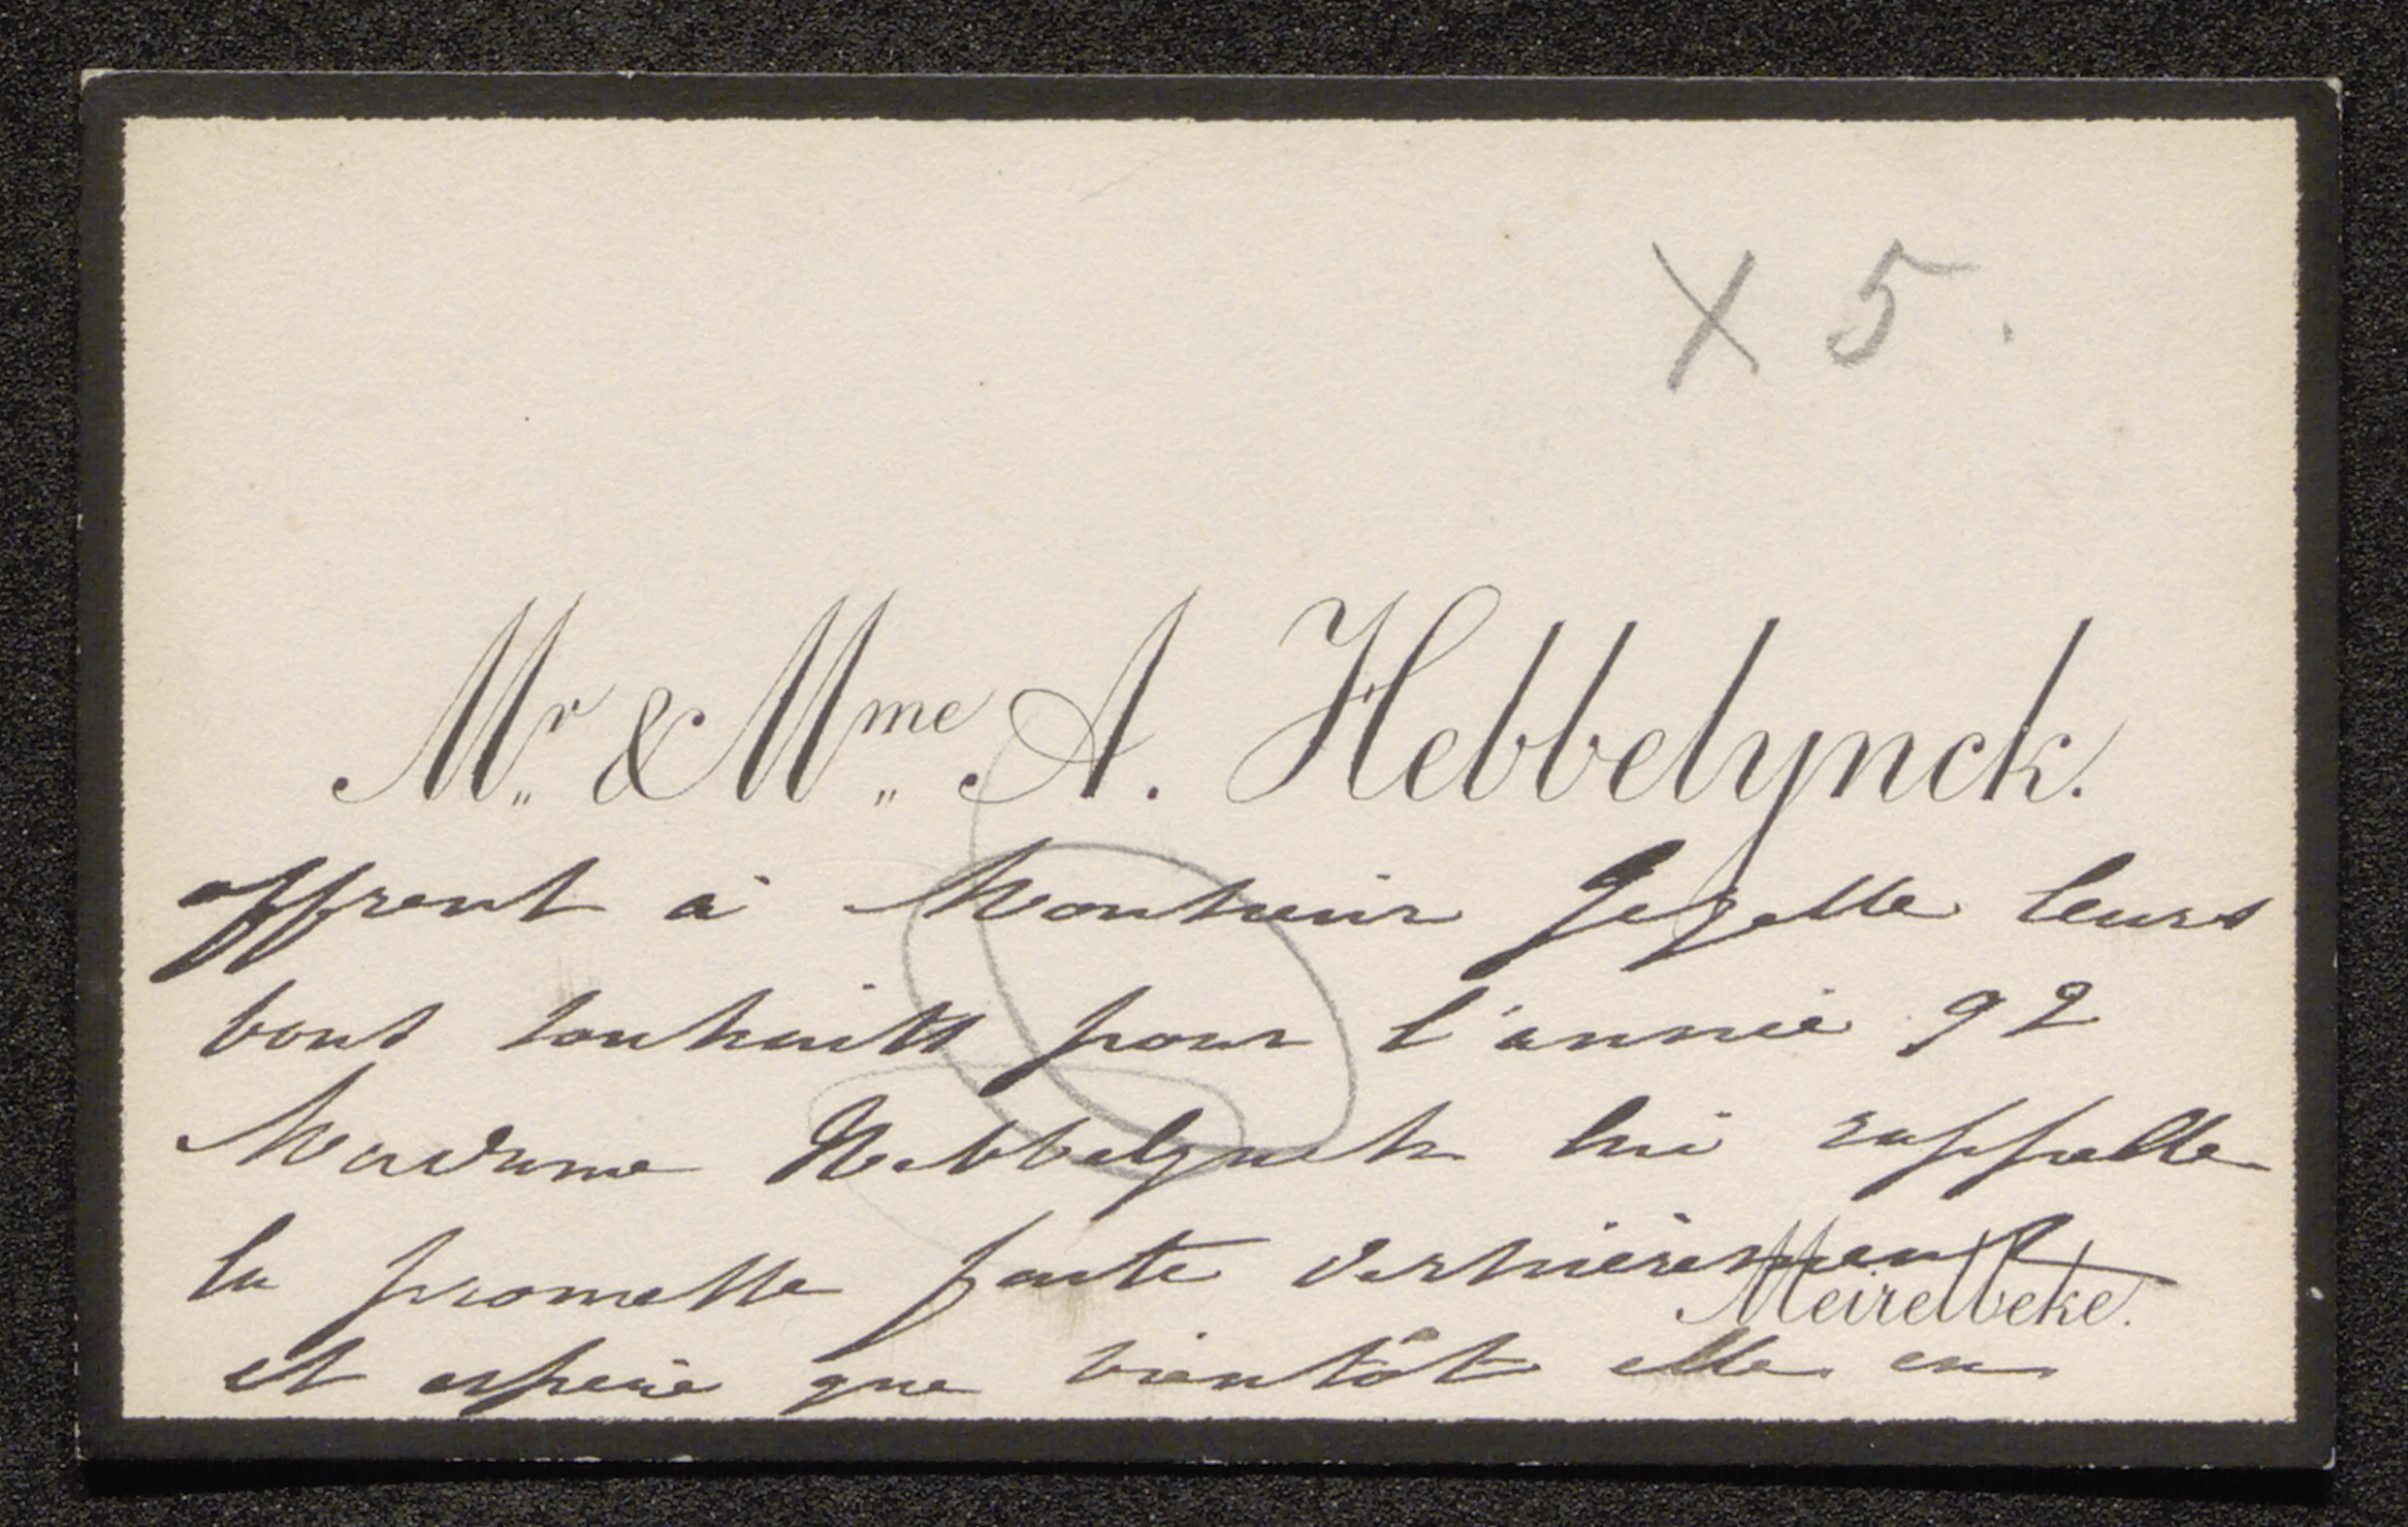 X 5.
Mr. & Mme. A. Hebbelynck.
offrent à Monsieur Gezelle leurs
bons souhaits pour l'année 92
Madame Hebbelynck lui rappelle
la promesse faite dernièrement
Meirelbeke.
et espère que bientôt elle en